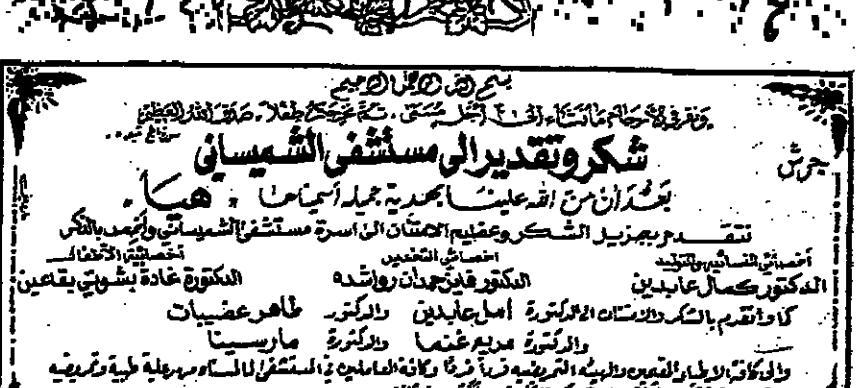 بسم الله الرحمن الرحيم
ونقر في الأرحام ما نشاء إلى أجل مسمى ثم نخرجكم طفلا . صدق الله العظيم
جرش
شكر وتقدير الى مستشفى الشميساني
بعد ان من الله علينا بهدية جميلة أسميناها « هبا »
نتقدم بجزيل الشكر وعظيم الامتنان الى اسرة مستشفى الشميساني وأخص بالذكر
أخصائي النسائية والتوليد
اخصائي التخدير
أخصائية الأطفال
الدكتور كمال عابدين
الدكتور فايز حمدان رواشده
الدكتورة غادة بشوتي بقاعين
كما وأتقدم بالشكر والامتنان الى الدكتورة أمل عابدين والدكتور طاهر عضيبات
والدكتورة مريم غنما والدكتورة مارسينا
والى كافة الاطباء المقيمين والهيئة التمريضيه فرداً فرداً وكافة العاملين في المستشفى لما لمسناه من رعاية طبية وتمريضيه